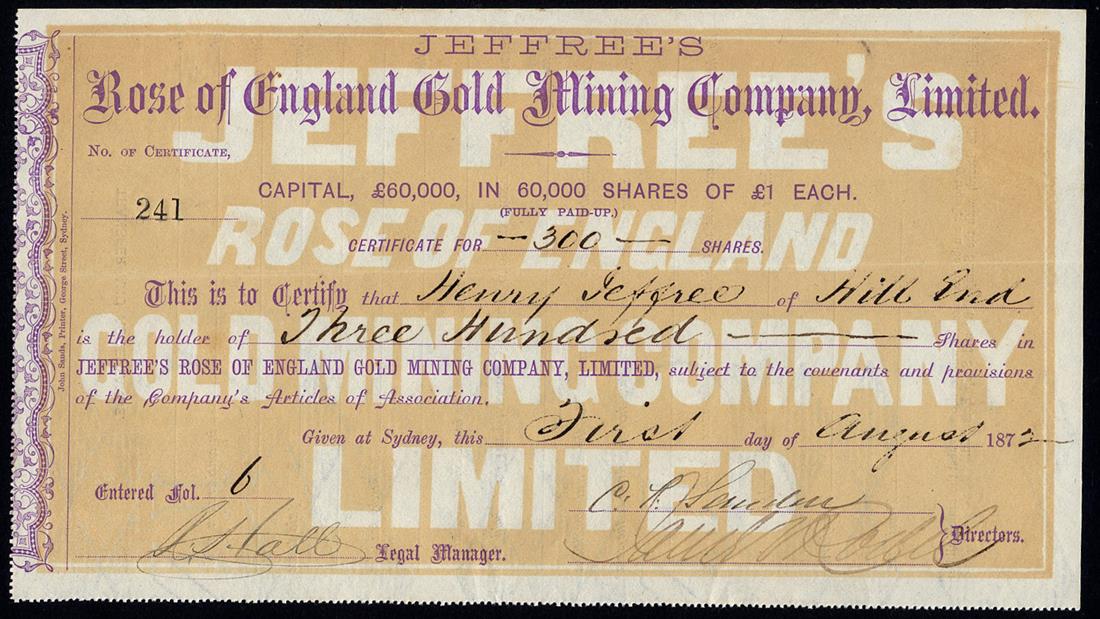 JEFFREE'S
Rose of England Gold Mining Company, Limited.
No. of Certificate,
241
CAPITAL, £60,000, IN 60,000 SHARES OF £1 EACH.
(FULLY PAID-UP.)
CERTIFICATE FOR — 300 — SHARES.
This is to Certify that Henry Jeffree of Hill End
is the holder of Three Hundred —— Shares in
JEFFREE'S ROSE OF ENGLAND GOLD MINING COMPANY, LIMITED, subject to the covenants and provisions
of the Company's Articles of Association.
Given at Sydney, this First day of August 1872
Entered Fol. 6
Hall Legal Manager.
Directors.
John Sands, Printer, George Street, Sydney.
JEFFREE'S
ROSE OF ENGLAND
GOLD MINING COMPANY
LIMITED